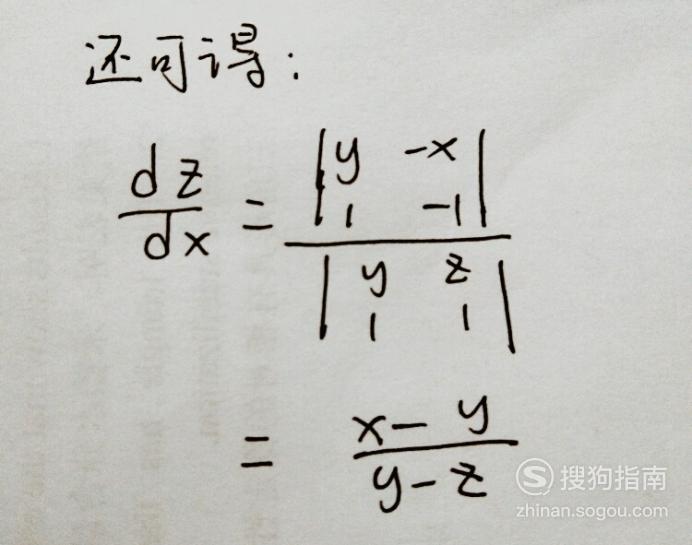 还可得:
dz/dx = |y -x; 1 -1| / |y z; 1 1|
= (x-y)/(y-z)
搜狗指南
zhinan.sogou.com